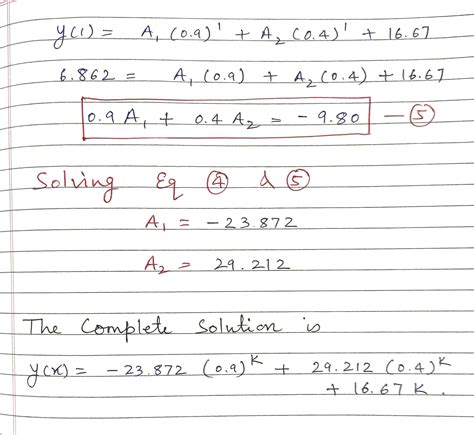 y(1) = A₁ (0.9)¹ + A₂ (0.4)¹ + 16.67
6.862 = A₁ (0.9) + A₂ (0.4) + 16.67
0.9 A₁ + 0.4 A₂ = - 9.80 — ⑤
Solving Eq ④ & ⑤
A₁ = -23.872
A₂ = 29.212
The Complete Solution is
y(x) = - 23.872 (0.9)ᴷ + 29.212 (0.4)ᴷ
+ 16.67 K.